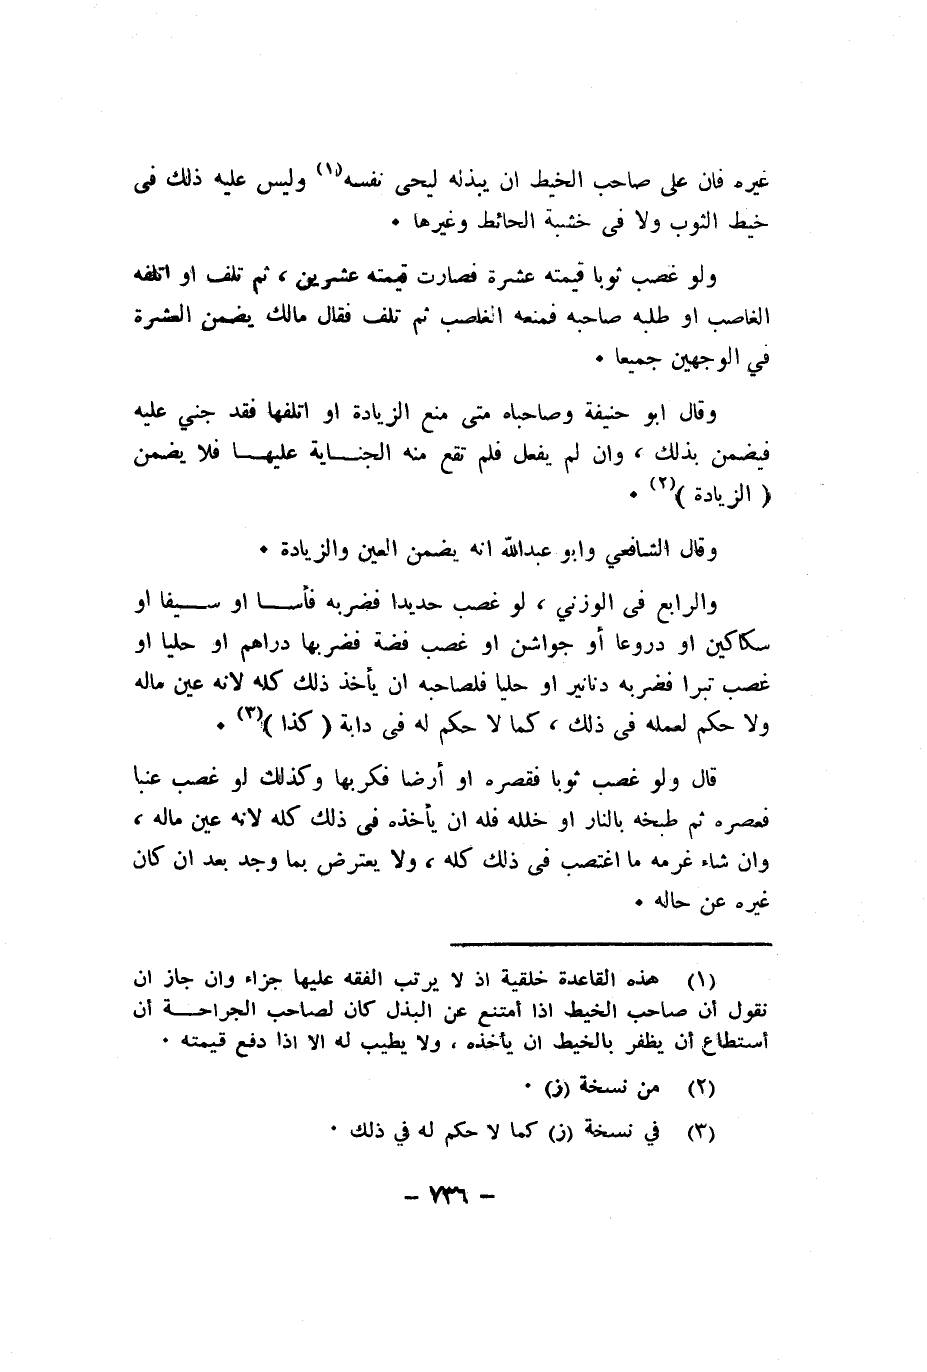 غيره فان على صاحب الخيط ان يبذله ليحى نفسه(١) وليس عليه ذلك فى
خيط الثوب ولا فى خشبة الحائط وغيرها ٠
ولو غصب ثوبا قيمته عشرة فصارت قيمته عشرين ، ثم تلف او اتلفه
الغاصب او طلبه صاحبه فمنعه الغاصب ثم تلف فقال مالك يضمن العشرة
في الوجهين جميعا ٠
وقال ابو حنيفة وصاحباه متى منع الزيادة او اتلفها فقد جني عليه
فيضمن بذلك ، وان لم يفعل فلم تقع منه الجنـــاية عليهـــا فلا يضمن
( الزيادة )(٢) ٠
وقال الشافعي وابو عبدالله انه يضمن العين والزيادة ٠
والرابع فى الوزني ، لو غصب حديدا فضربه فأســـا او ســـيفا او
سكاكين او دروعا أو جواشن او غصب فضة فضربها دراهم او حليا او
غصب تبرا فضربه دنانير او حليا فلصاحبه ان يأخذ ذلك كله لانه عين ماله
ولا حكم لعمله فى ذلك ، كما لا حكم له فى دابة ( كذا )(٣) ٠
قال ولو غصب ثوبا فقصره او أرضا فكربها وكذلك لو غصب عنبا
فعصره ثم طبخه بالنار او خلله فله ان يأخذه فى ذلك كله لانه عين ماله ،
وان شاء غرمه ما اغتصب فى ذلك كله ، ولا يعترض بما وجد بعد ان كان
غيره عن حاله ٠
(١) هذه القاعدة خلقية اذ لا يرتب الفقه عليها جزاء وان جاز ان
نقول أن صاحب الخيط اذا أمتنع عن البذل كان لصاحب الجراحـــة أن
أستطاع أن يظفر بالخيط ان يأخذه ، ولا يطيب له الا اذا دفع قيمته ٠
(٢) من نسخة (ز) ٠
(٣) في نسخة (ز) كما لا حكم له في ذلك ٠
– ٧٣٦ –